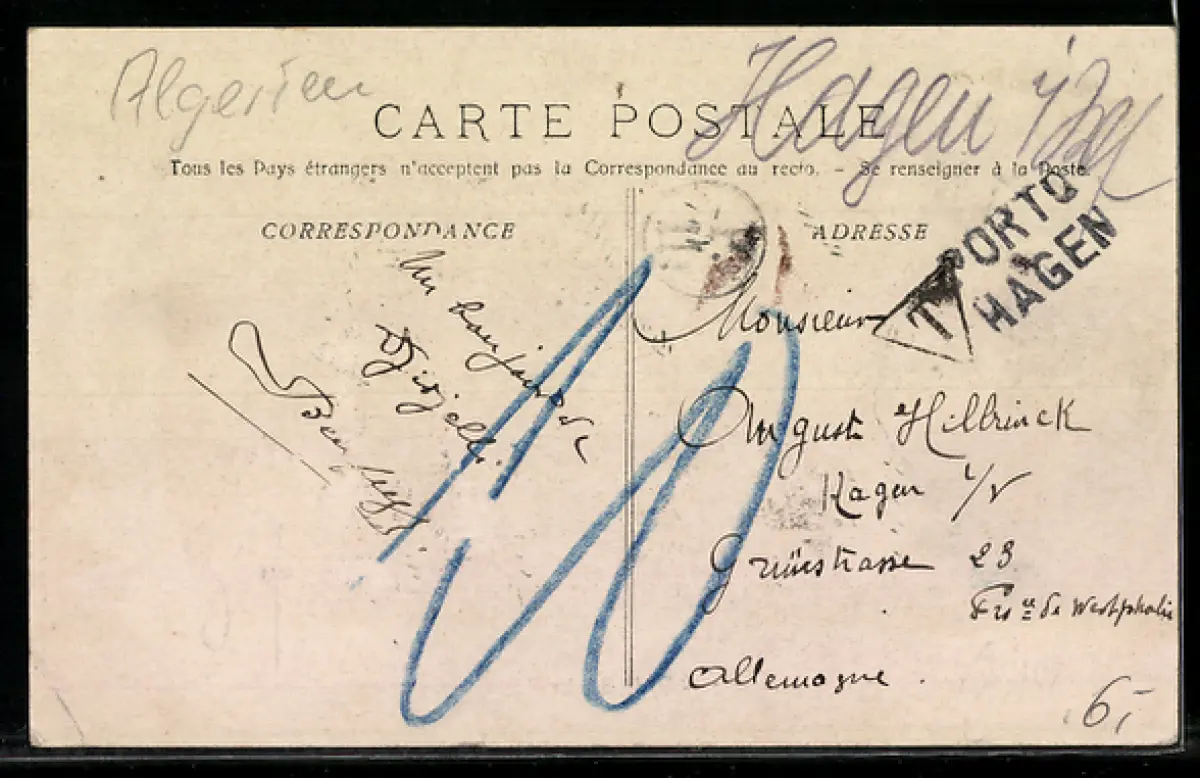 Algerien
Hagen i/W
CARTE POSTALE
Tous les Pays étrangers n'acceptent pas la Correspondance au recto. – Se renseigner à la Poste.
CORRESPONDANCE
ADRESSE
PORTO
HAGEN
T
Un bonjour de
Djidjelli
Monsieur
August Hilbrinck
Hagen i/V
Grünstrasse 23
de Westphalie
Allemagne.
10
6,-